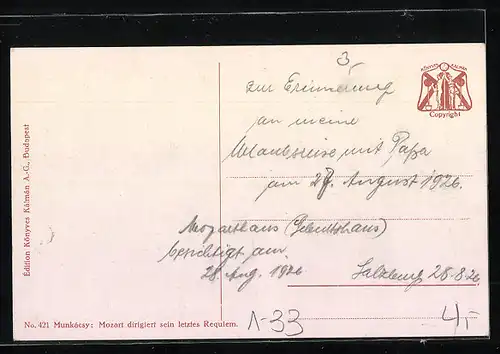 3
KÖNYVES KÁLMÁN
Copyright
zur Erinnerung
an meine
Urlaubsreise mit Papa
am 28. August 1926.
Mozarthaus (Geburtshaus)
besichtigt am
28. Aug. 1926
Salzburg 28.8.26
Édition Könyves Kálmán A.-G., Budapest
No. 421 Munkácsy: Mozart dirigiert sein letztes Requiem.
1-33
4,-